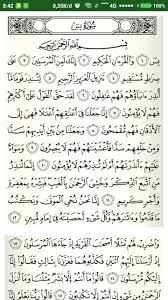 8:42 0,35K/s 4G
سُورَةُ يسٓ
بِسْمِ ٱللَّهِ ٱلرَّحْمَٰنِ ٱلرَّحِيمِ
يسٓ ١ وَٱلْقُرْءَانِ ٱلْحَكِيمِ ٢ إِنَّكَ لَمِنَ ٱلْمُرْسَلِينَ ٣ عَلَىٰ
صِرَٰطٍ مُّسْتَقِيمٍ ٤ تَنزِيلَ ٱلْعَزِيزِ ٱلرَّحِيمِ ٥ لِتُنذِرَ قَوْمًا
مَّآ أُنذِرَ ءَابَآؤُهُمْ فَهُمْ غَٰفِلُونَ ٦ لَقَدْ حَقَّ ٱلْقَوْلُ عَلَىٰٓ أَكْثَرِهِمْ
فَهُمْ لَا يُؤْمِنُونَ ٧ إِنَّا جَعَلْنَا فِىٓ أَعْنَٰقِهِمْ أَغْلَٰلًا فَهِىَ إِلَى
ٱلْأَذْقَانِ فَهُم مُّقْمَحُونَ ٨ وَجَعَلْنَا مِنۢ بَيْنِ أَيْدِيهِمْ سَدًّا
وَمِنْ خَلْفِهِمْ سَدًّا فَأَغْشَيْنَٰهُمْ فَهُمْ لَا يُبْصِرُونَ ٩ وَسَوَآءٌ
عَلَيْهِمْ ءَأَنذَرْتَهُمْ أَمْ لَمْ تُنذِرْهُمْ لَا يُؤْمِنُونَ ١٠ إِنَّمَا تُنذِرُ
مَنِ ٱتَّبَعَ ٱلذِّكْرَ وَخَشِىَ ٱلرَّحْمَٰنَ بِٱلْغَيْبِ فَبَشِّرْهُ بِمَغْفِرَةٍ
وَأَجْرٍ كَرِيمٍ ١١ إِنَّا نَحْنُ نُحْىِ ٱلْمَوْتَىٰ وَنَكْتُبُ مَا قَدَّمُوا۟
وَءَاثَٰرَهُمْ وَكُلَّ شَىْءٍ أَحْصَيْنَٰهُ فِىٓ إِمَامٍ مُّبِينٍ ١٢
وَٱضْرِبْ لَهُم مَّثَلًا أَصْحَٰبَ ٱلْقَرْيَةِ إِذْ جَآءَهَا ٱلْمُرْسَلُونَ ١٣
إِذْ أَرْسَلْنَآ إِلَيْهِمُ ٱثْنَيْنِ فَكَذَّبُوهُمَا فَعَزَّزْنَا بِثَالِثٍ فَقَالُوٓا۟
إِنَّآ إِلَيْكُم مُّرْسَلُونَ ١٤ قَالُوا۟ مَآ أَنتُمْ إِلَّا بَشَرٌ مِّثْلُنَا وَمَآ أَنزَلَ